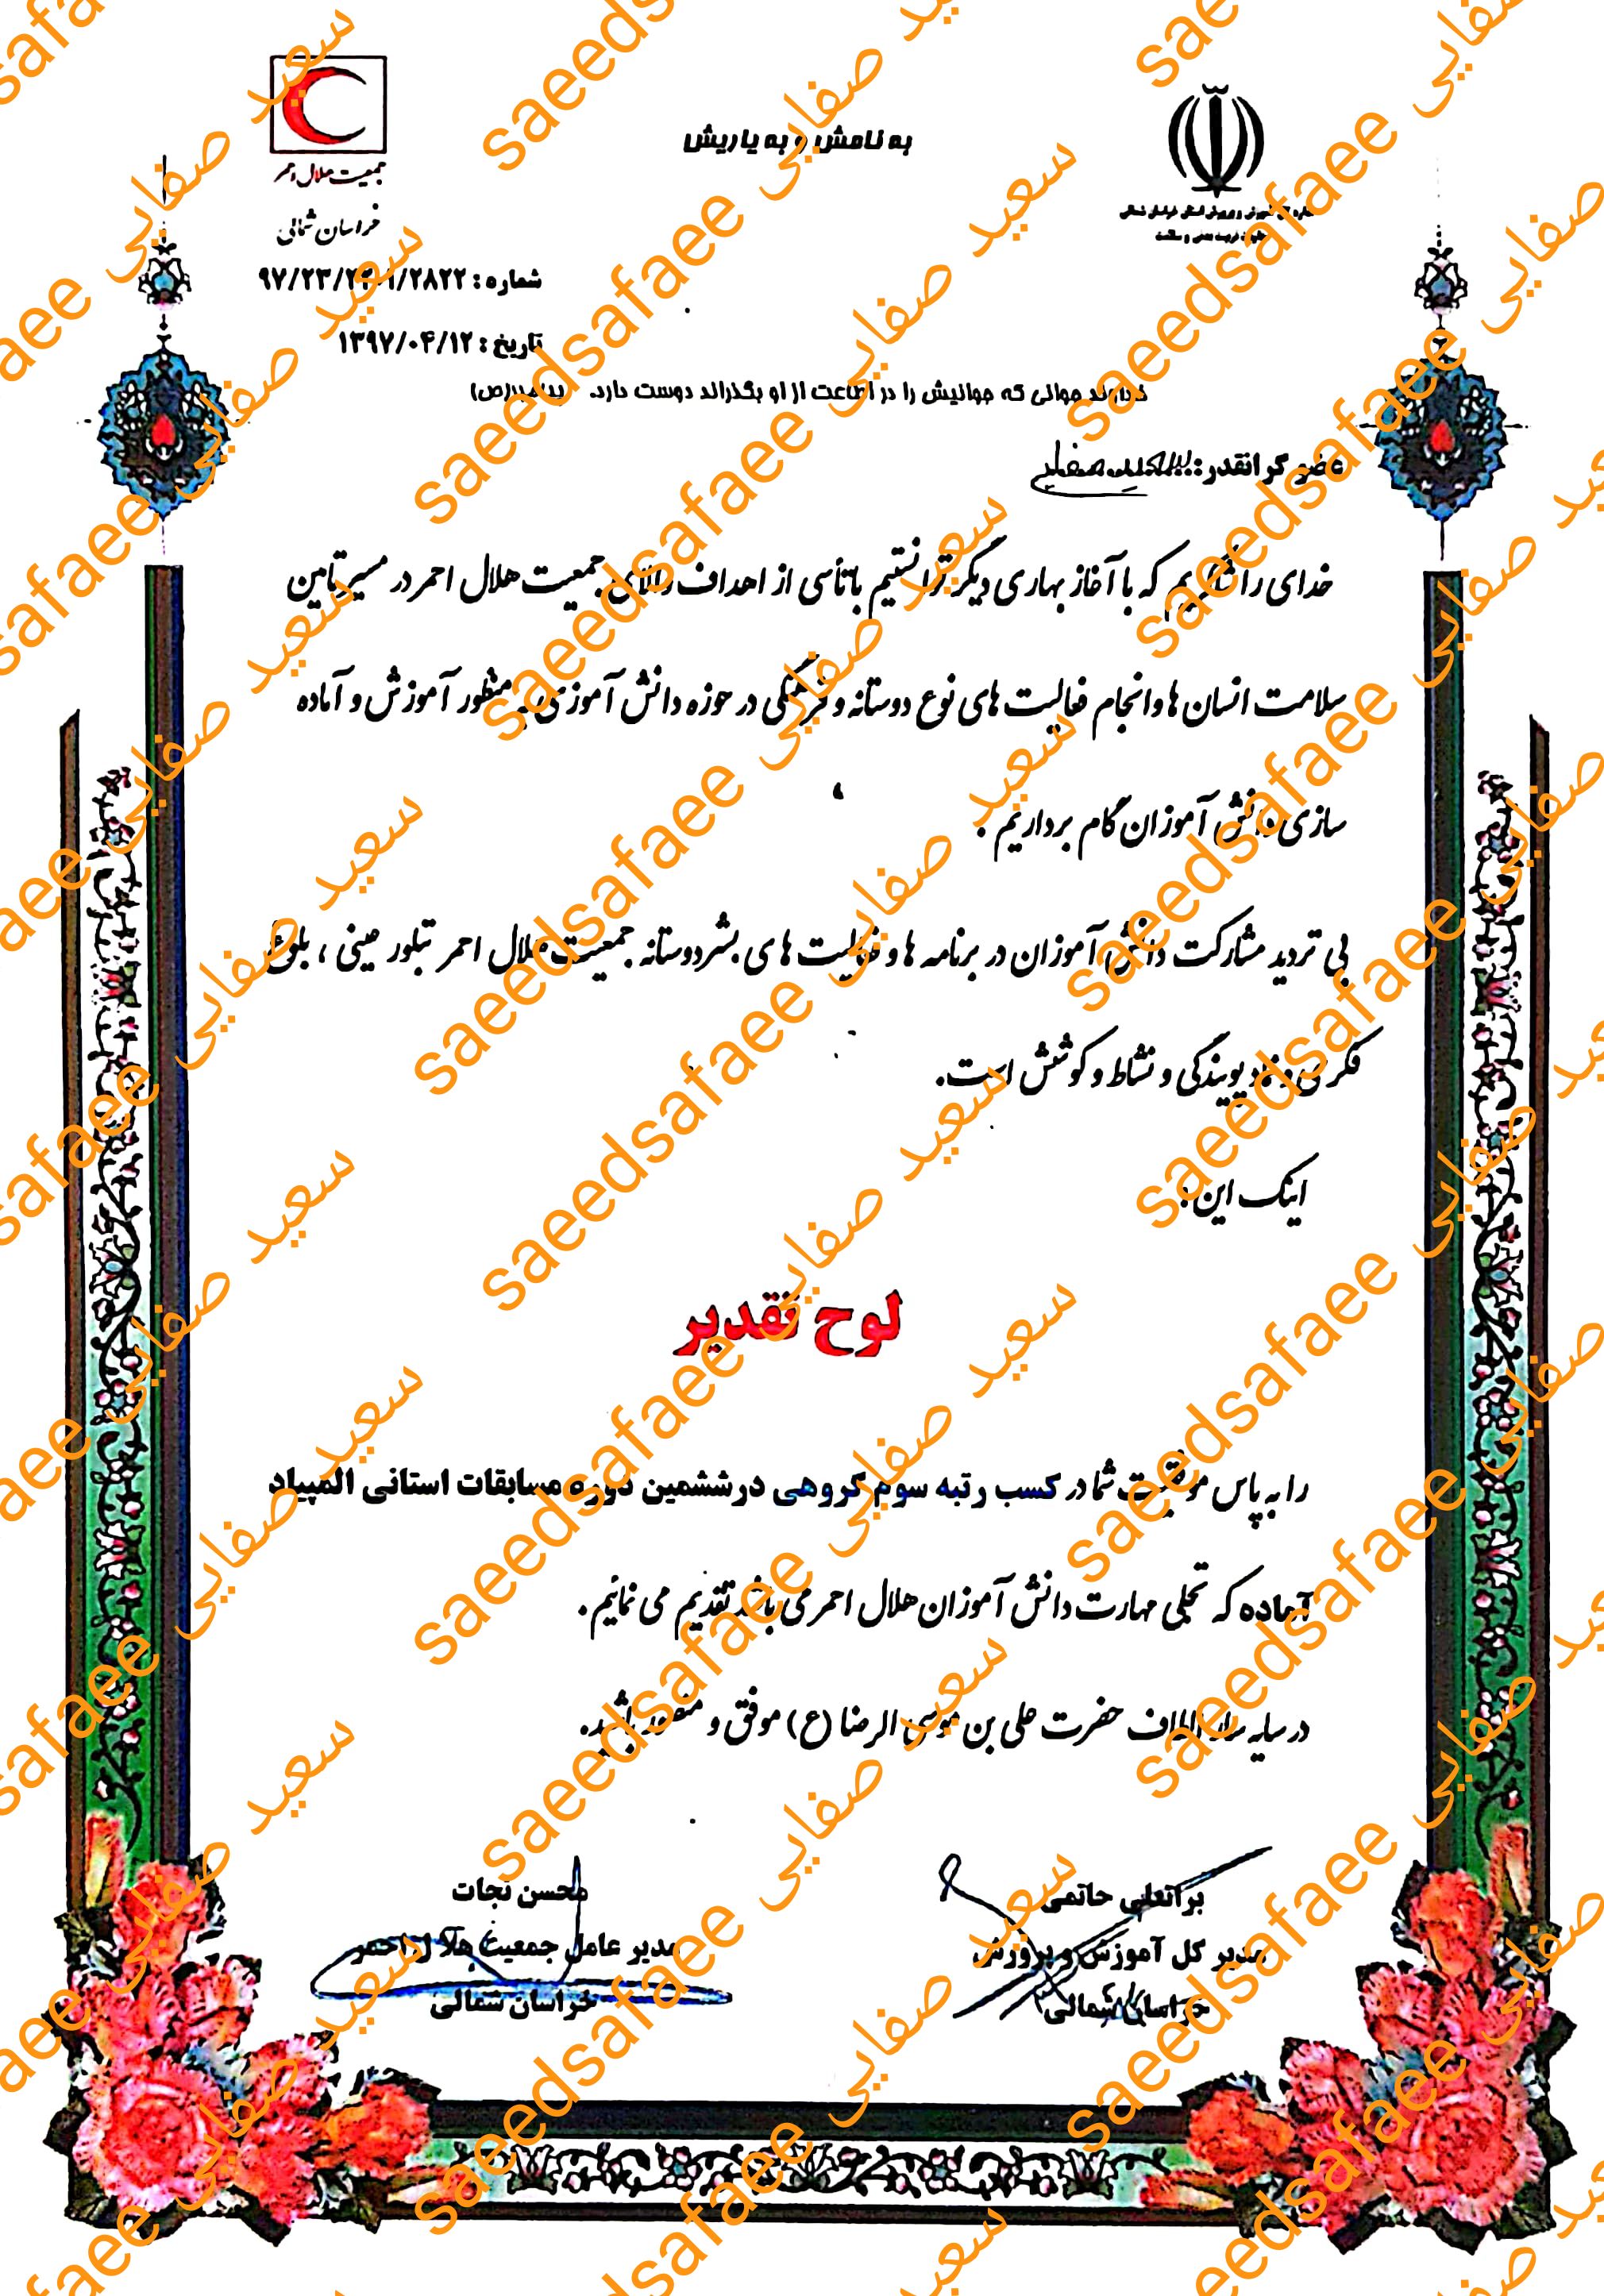 جمعیت هلال احمر
خراسان شمالی
به نامش و به یاریش
اداره کل آموزش و پرورش استان خراسان شمالی
معاونت تربیت بدنی و سلامت
شماره: ۹۷/۲۳/۲۳۰۱/۲۸۲۲
تاریخ: ۱۳۹۷/۰۴/۱۲
خداوند جوانی که جوانیش را در اطاعت از او بگذراند دوست دارد. پیامبر(ص)
عضو گرانقدر: سعید صفایی
خدای را شاکریم که با آغاز بهاری دیگر توانستیم با تأسی از اهداف والای جمعیت هلال احمر در مسیر تامین
سلامت انسان ها و انجام فعالیت های نوع دوستانه و فرهنگی در حوزه دانش آموزی به منظور آموزش و آماده
سازی دانش آموزان گام برداریم.
بی تردید مشارکت دانش آموزان در برنامه ها و فعالیت های بشردوستانه جمعیت هلال احمر تبلور عینی، بلوغ
فکری و نماد پویندگی و نشاط و کوشش است.
اینک این:
لوح تقدیر
را به پاس موفقیت شما در کسب رتبه سوم گروهی در ششمین دوره مسابقات استانی المپیاد
آماده که تجلی مهارت دانش آموزان هلال احمر می باشد تقدیم می نمائیم.
در سایه سار الطاف حضرت علی بن موسی الرضا (ع) موفق و منصور باشید.
براتعلی حاتمی
مدیر کل آموزش و پرورش
خراسان شمالی
محسن نجات
مدیر عامل جمعیت هلال احمر
خراسان شمالی
saeedsafaee سعید صفایی